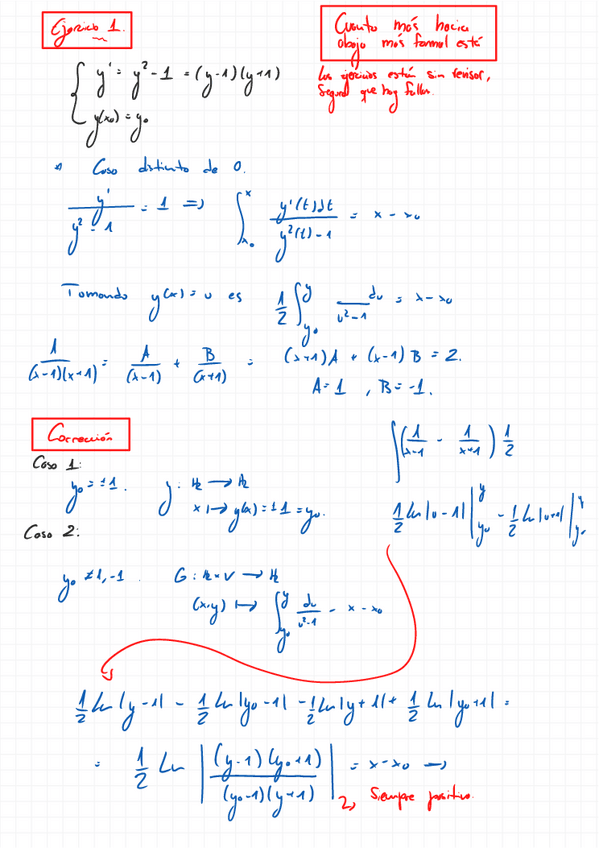 Ejercicio 1.
Cuanto más hacia
abajo más formal está
Los ejercicios están sin revisar,
Seguro que hay fallos.
{ y' = y² - 1 = (y-1)(y+1)
y(x₀) = y₀
* Caso distinto de 0.
y' / (y² - 1) = 1 => ∫_{x₀}^{x} y'(t)dt / (y²(t) - 1) = x - x₀
Tomando y(x) = u es 1/2 ∫_{y₀}^{y} du / (u² - 1) = x - x₀
1 / ((x-1)(x+1)) = A / (x-1) + B / (x+1) = (x+1)A + (x-1)B = 2.
A = 1 , B = -1.
Corrección
∫ (1/(x-1) - 1/(x+1)) 1/2
Caso 1:
y₀ = ±1. y: ℝ → ℝ
x ↦ y(x) = ±1 = y₀.
1/2 ln|u-1| |_{y₀}^{y} - 1/2 ln|u+1| |_{y₀}^{y}
Caso 2:
y₀ ≠ 1, -1 G: ℝ × V → ℝ
(x,y) ↦ ∫_{y₀}^{y} du / (u² - 1) - x - x₀
1/2 ln|y-1| - 1/2 ln|y₀-1| - 1/2 ln|y+1| + 1/2 ln|y₀+1| =
= 1/2 ln |(y-1)(y₀+1) / (y₀-1)(y+1)| = x - x₀ →
↳ Siempre positivo.